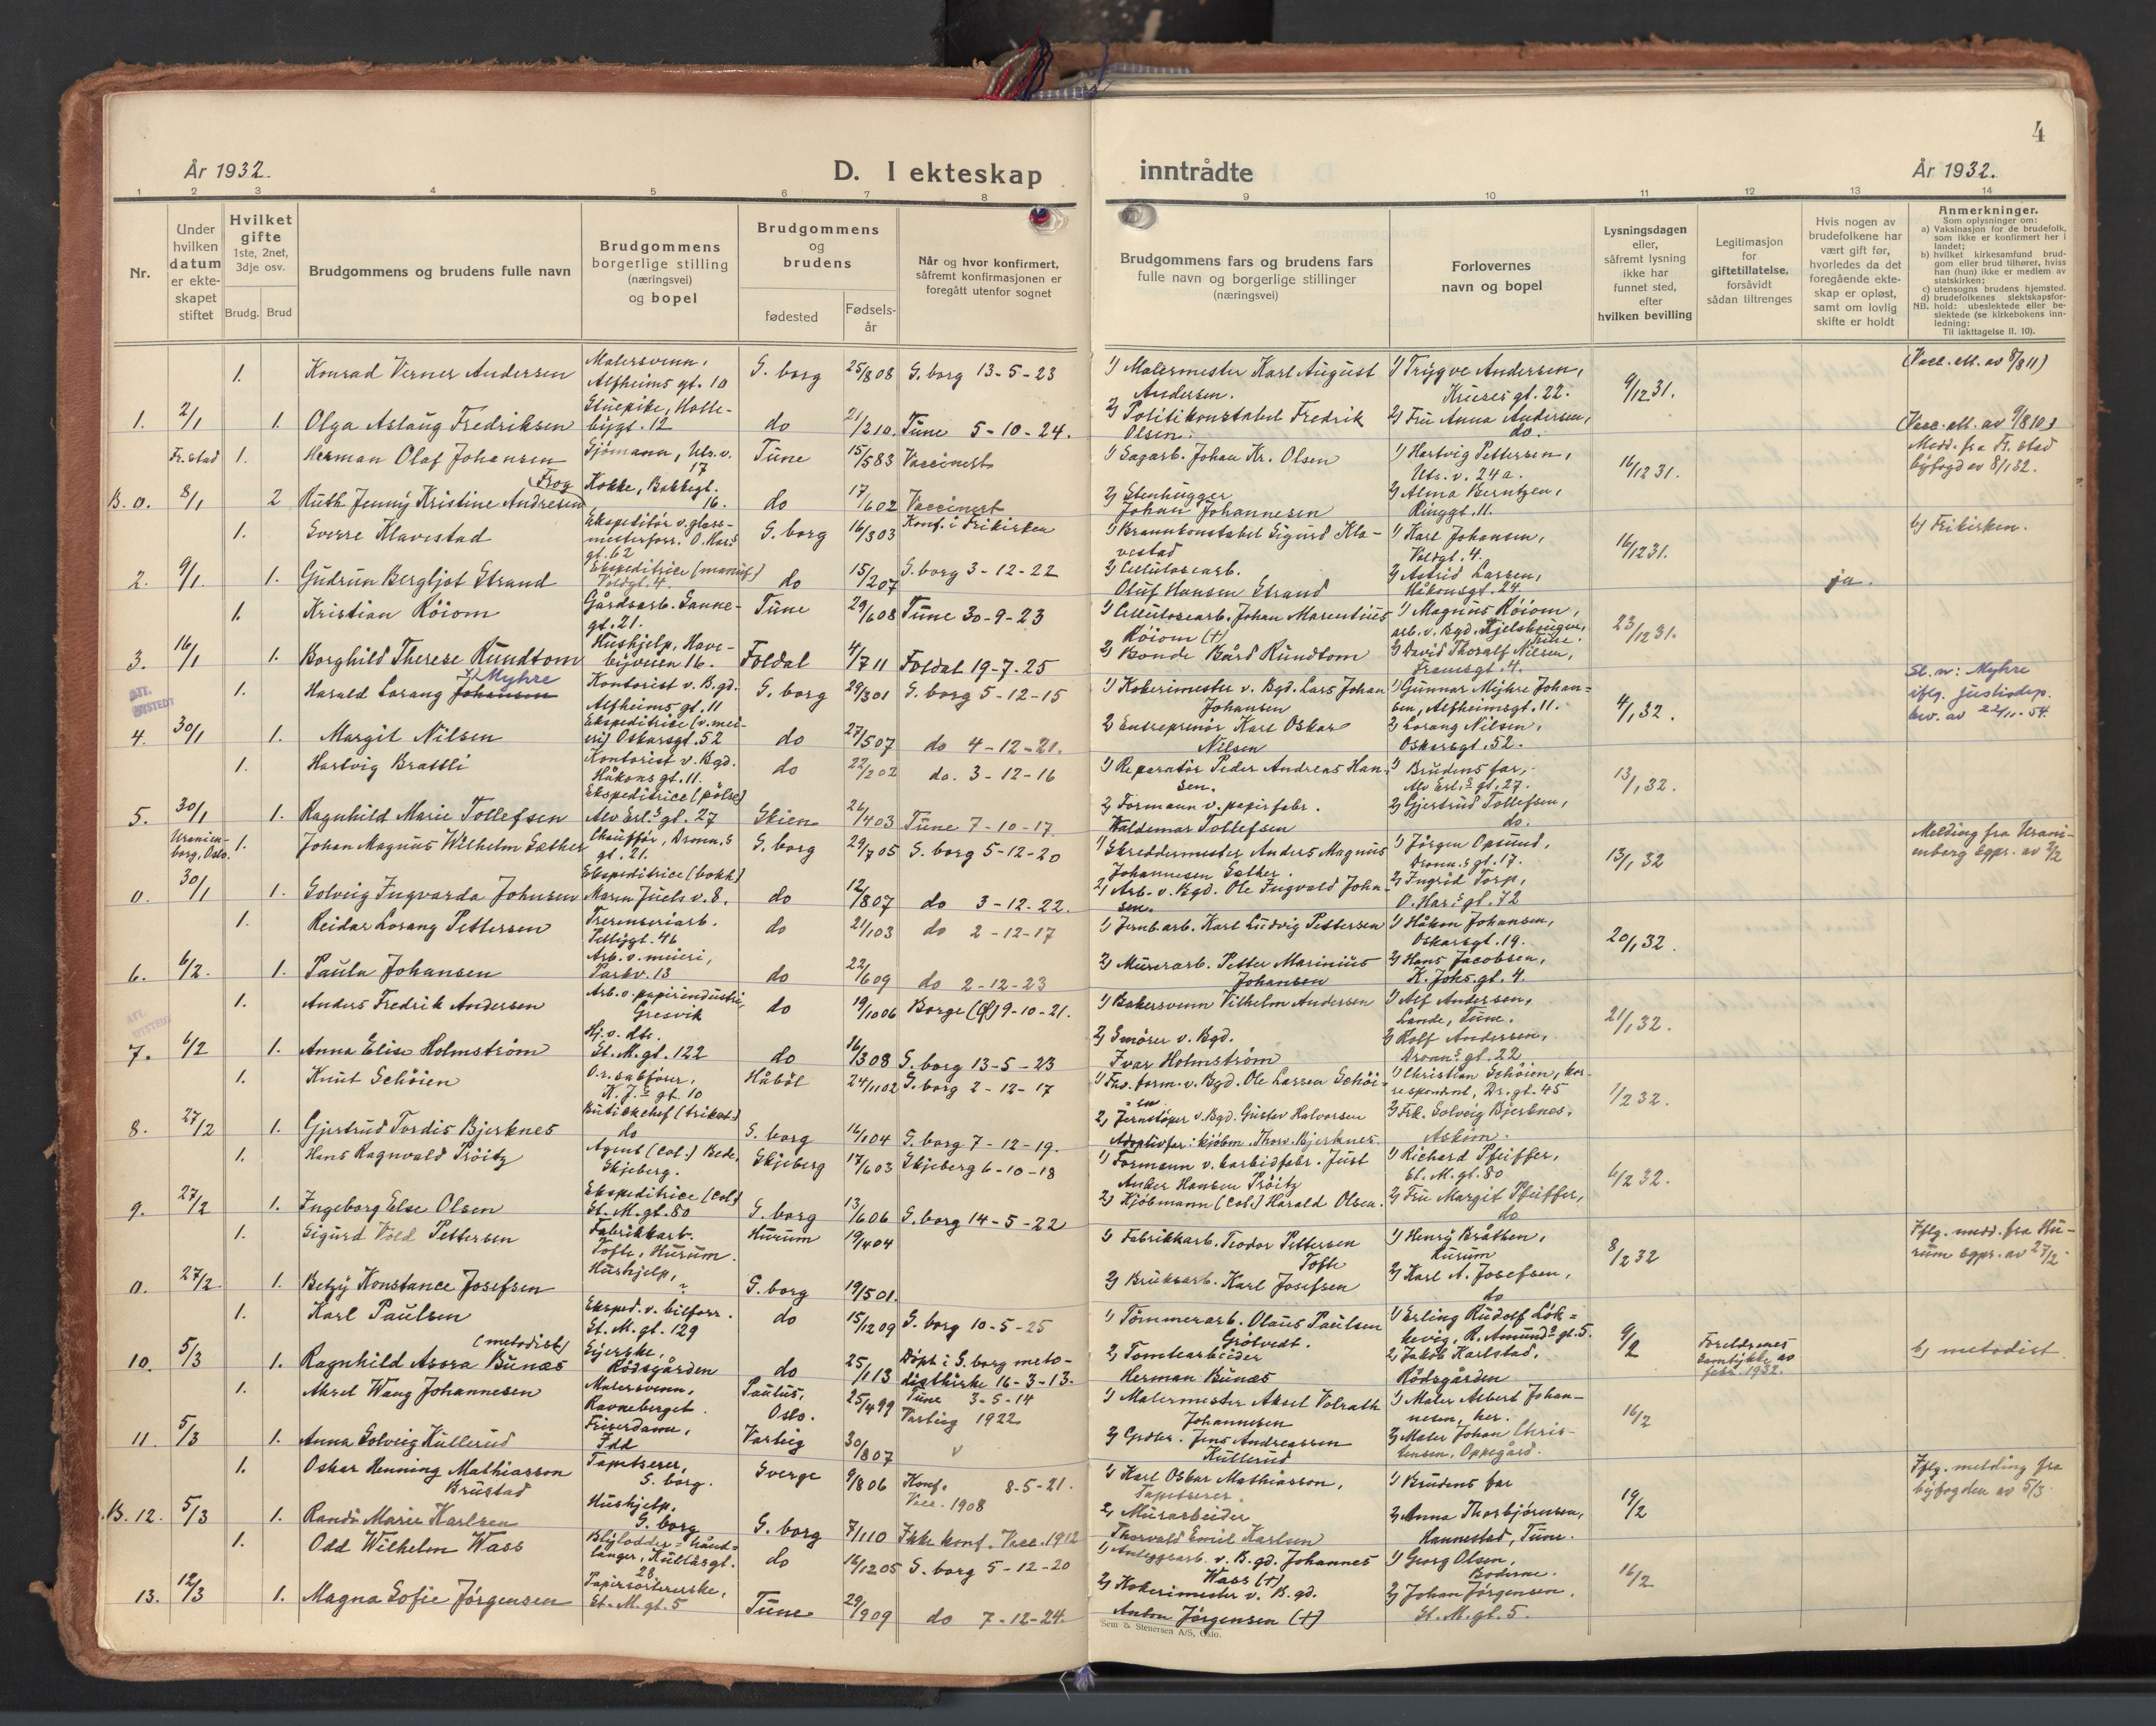 4
År 1932.
D. I ekteskap
inntrådte
År 1932.
1 2 3 4 5 6 7 8 9 10 11 12 13 14
Nr.
Under hvilken datum er ekteskapet stiftet
Hvilket gifte
1ste, 2net, 3dje osv.
Brudg. Brud
Brudgommens og brudens fulle navn
Brudgommens borgerlige stilling (næringsvei) og bopel
Brudgommens og brudens
fødested
Fødselsår
Når og hvor konfirmert, såfremt konfirmasjonen er foregått utenfor sognet
Brudgommens fars og brudens fars fulle navn og borgerlige stillinger (næringsvei)
Forlovernes navn og bopel
Lysningsdagen eller, såfremt lysning ikke har funnet sted, efter hvilken bevilling
Legitimasjon for giftetillatelse, forsåvidt sådan tiltrenges
Hvis nogen av brudefolkene har vært gift før, hvorledes da det foregående ekteskap er opløst, samt om lovlig skifte er holdt
Anmerkninger.
Som oplysninger om:
a) Vaksinasjon for de brudefolk, som ikke er konfirmert her i landet;
b) hvilket kirkesamfund brudgom eller brud tilhører, hviss han (hun) ikke er medlem av statskirken;
c) utensogns brudens hjemsted.
d) brudefolkenes slektskapsforhold: ubeslektede eller beslektede (se kirkebokens innledning:
NB. Til iakttagelse II. 10).
1. Konrad Verner Andersen Malersvenn, Alfheims gt. 10 S. borg 25/8 08 S. borg 13-5-23 1) Malermester Karl August Andersen. 1) Trygve Andersen, Kruses gt. 22. 9/12 31. (Vacc. att. av 8/8 11)
1. 2/1 1. Olga Aslaug Fredriksen Stuepike, Hollebygt. 12 do 21/2 10. Tune 5-10-24. 2) Politikonstabel Fredrik Olsen. 2) Fru Anna Andersen, do. (Vacc. att. av 9/8 10)
Fr.stad 1. Herman Olaf Johansen Sjömann, Uts. v. 17 Tune 15/5 83 Vaccinert 1) Sagarb. Johan Kr. Olsen 1) Hartvig Pettersen, Uts. v. 24 a. 16/12 31. Medd. fra Fr. stad byfogd av 8/1 32.
B. 0. 8/1 2 Ruth Jenny Kristine Andresen (Frog Kokke, Bakkegt. 16. do 17/6 02 Vaccinert 2) Stenhugger Johan Johannesen 2) Alma Berntzen, Ringgt. 11.
1. Sverre Klavestad Ekspeditör v. glassmesterforr. O. Har.s gt. 62 S. borg 16/3 03 Konf. i Frikirken 1) Brannkonstabel Sigurd Klavestad 1) Karl Johansen, Voldgt. 4. 16/12 31. b) Frikirken.
2. 9/1 1. Gudrun Bergljot Strand Ekspeditrice (manuf.) Voldgt. 4. do 15/2 07 S. borg 3-12-22 2) Cellulosearb. Oluf Hansen Strand 2) Astrid Larsen, Håkonsgt. 24 ja.
1. Kristian Röiom Gårdsarb. Sannegt. 21. Tune 29/6 08 Tune 30-9-23 1) Cellulosearb. Johan Marentius Röiom (+) 1) Magnus Röiom, arb. v. Bgd. Kjelshaugen, Tune. 23/12 31.
3. 16/1 1. Borghild Therese Rundtom Hushjelp, Havebyveien 16. Foldal 4/7 11 Foldal 19-7-25 2) Bonde Bård Rundtom 2) David Thoralf Nilsen, Framsgt. 4.
ATT. UTSTEDT 1. Harald Lorang Johansen Myhre Kontorist v. B.gd. Alfheims gt. 11 S. borg 29/3 01 S. borg 5-12-15 1) Kokerimester v. Bgd. Lars Johan Johansen 1) Gunnar Myhre Johansen, Alfheimsgt. 11. 4/1 32. Sl.n: Myhre iflg. Justisdep. bev. av 22/11-54.
4. 30/1 1. Margit Nilsen Ekspeditrice (v. meieri) Oskarsgt. 52 do 27/5 07 do 4-12-21. 2) Entreprenör Karl Oskar Nilsen 2) Lorang Nilsen, Oskarsgt. 52.
1. Hartvig Brattli Kontorist v. Bgd. Håkons gt. 11. do 22/2 02 do. 3-12-16 1) Reparatör Peder Andreas Hansen. 1) Brudens far, Alv Erl.s gt. 27. 13/1 32.
5. 30/1 1. Ragnhild Marie Tollefsen Ekspeditrice (pölse) Alv Erl.s gt. 27 Skien 26/4 03 Tune 7-10-17. 2) Formann v. papirfabr. Waldemar Tollefsen 2) Gjertrud Tollefsen, do.
Uranienborg, Oslo. 1. Johan Magnus Wilhelm Sæther Chaufför, Dronn.s gt. 21. S. borg 29/7 05 S. borg 5-12-20 1) Skreddermester Anders Magnus Johannesen Sæther. 1) Jörgen Opsund, Dronn.s gt. 17. 13/1 32 Melding fra Uranienborg sgpr. av 3/2
0. 30/1 1. Solveig Ingvarda Johnsen Ekspeditrice (bokh) Maren Juels v. 8. do 12/8 07 do 3-12-22. 2) Arb. v. Bgd. Ole Ingvald Johnsen. 2) Ingrid Torp, O. Har.s gt. 72
1. Reidar Lorang Pettersen Trevareriarb. Pellygt. 46 do 21/1 03 do 2-12-17 1) Jernb.arb. Karl Ludvig Pettersen 1) Håkon Johansen, Oskarsgt. 19. 20/1 32.
6. 6/2. 1. Paula Johansen Arb. v. meieri, Parkv. 13 do 22/6 09 do 2-12-23 2) Murerarb. Petter Marinius Johansen 2) Hans Jacobsen, K. Johs. gt. 4.
ATT. UTSTEDT 1. Anders Fredrik Andersen Arb. v. papirindustri, Gresvik do 19/10 06 Borge (Ö) 9-10-21. 1) Bakersvenn Vilhelm Andersen 1) Alf Andersen, Lande, Tune. 21/1 32.
7. 6/2 1. Anna Elise Holmström Hj.v. dtr. St. M. gt. 122 do 16/3 08 S. borg 13-5-23 2) Smörer v. Bgd. Ivar Holmström 2) Rolf Andersen, Dronn.s gt. 22
1. Knut Schöien O.r. sakförer, K. J.s gt. 10 Håböl 24/11 02 S. borg 2-12-17 1) Fhv. form. v. Bgd. Ole Larsen Schöien 1) Christian Schöien, korrespondent, Dr. gt. 45 1/2 32.
8. 27/2 1. Gjertrud Tordis Bjerknes Butikkchef (trikot.) do S. borg 16/1 04 S. borg 7-12-19. 2) Jernstöper v. Bgd. Gustav Halvorsen Adoptivfar: kjöbm. Thorv. Bjerknes. 2) Frk. Solveig Bjerknes, Askim.
1. Hans Ragnvald Tröitz Agent (col.) Bede, Skjeberg. Skjeberg 17/6 03 Skjeberg 6-10-18 1) Formann v. karbidfabr. Just Anker Hansen Tröitz 1) Richard Pfeiffer, St. M. gt. 80 6/2 32.
9. 27/2 1. Ingeborg Else Olsen Ekspeditrice (col.) St. M. gt. 80 S. borg 13/6 06 S. borg 14-5-22 2) Kjöbmann (col.) Harald Olsen. 2) Fru Margit Pfeiffer, do
1. Sigurd Vold Pettersen Fabrikkarb. Tofte, Hurum. Hurum 19/4 04 1) Fabrikkarb. Teodor Pettersen Tofte 1) Henry Bråthen, Hurum 8/2 32 Iflg. medd. fra Hurum sgpr. av 27/2.
0. 27/2 1. Betzy Konstance Josefsen Hushjelp, ? S. borg 19/5 01. 2) Bruksarb. Karl Josefsen 2) Karl A. Josefsen, do
1. Karl Paulsen Eksped. v. bilforr. St. M. gt. 129 do 15/12 09 S. borg 10-5-25 1) Tömmerarb. Olaus Paulsen Grötvedt. 1) Erling Rudolf Lökkevig, R. Amund.s gt. 5. 9/2 Foreldrenes samtykke av febr. 1932.
10. 5/3 1. Ragnhild Asora Bunæs (metodist) Syerske, Rödsgården do 25/1 13 Döpt i S. borg metodistkirke 16-3-13. 2) Tomtearbeider Herman Bunæs 2) Jakob Karlstad, Rödsgården b) metodist
1. Aksel Wang Johannesen Malersvenn, Ravneberget. Paulus, Oslo. 25/4 99 Tune 3-5-14 1) Malermester Aksel Volrath Johannesen 1) Maler Albert Johannesen, her. 16/2
11. 5/3 1. Anna Solveig Kullerud Friserdame, Idd Varteig 30/8 07 Varteig 1922 2) Grdbr. Jens Andreassen Kullerud 2) Maler Johan Christensen, Oppegård.
1. Oskar Henning Mathiasson Brustad Tapetserer, S. borg. Sverge 9/8 06 Konf. 8-5-21. Vacc. 1908 1) Karl Oskar Mathiasson, Tapetserer. 1) Brudens far 19/2 Iflg. melding fra byfogden av 5/3.
B. 12. 5/3 1. Randi Marie Karlsen Hushjelp. S. borg S. borg 7/1 10 Ikke konf. Vacc. 1912 2) Murarbeider Thorvald Emil Karlsen 2) Anna Thorbjörnsen, Hannestad, Tune.
1. Odd Wilhelm Wass Blylodder-håndlanger, Kullåsgt. 28 do 16/12 05 S. borg 5-12-20 1) Anleggsarb. v. B. gd. Johannes Wass (+) 1) Georg Olsen, Boderne. 16/2
13. 12/3 1. Magna Sofie Jörgensen Papirsortererske, St. M. gt. 5 Tune 29/9 09 do 7-12-24. 2) Kokerimester v. B. gd. Anton Jörgensen (+) 2) Johan Jörgensen. St. M. gt. 5.
Sem & Stenersen A/S, Oslo.